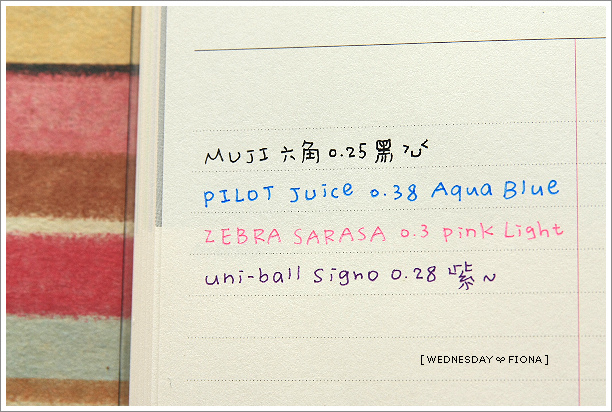 MUJI 六角 0.25 黑
PILOT Juice 0.38 Aqua Blue
ZEBRA SARASA 0.3 pink Light
uni-ball Signo 0.28 紫~
[WEDNESDAY ღ FIONA]